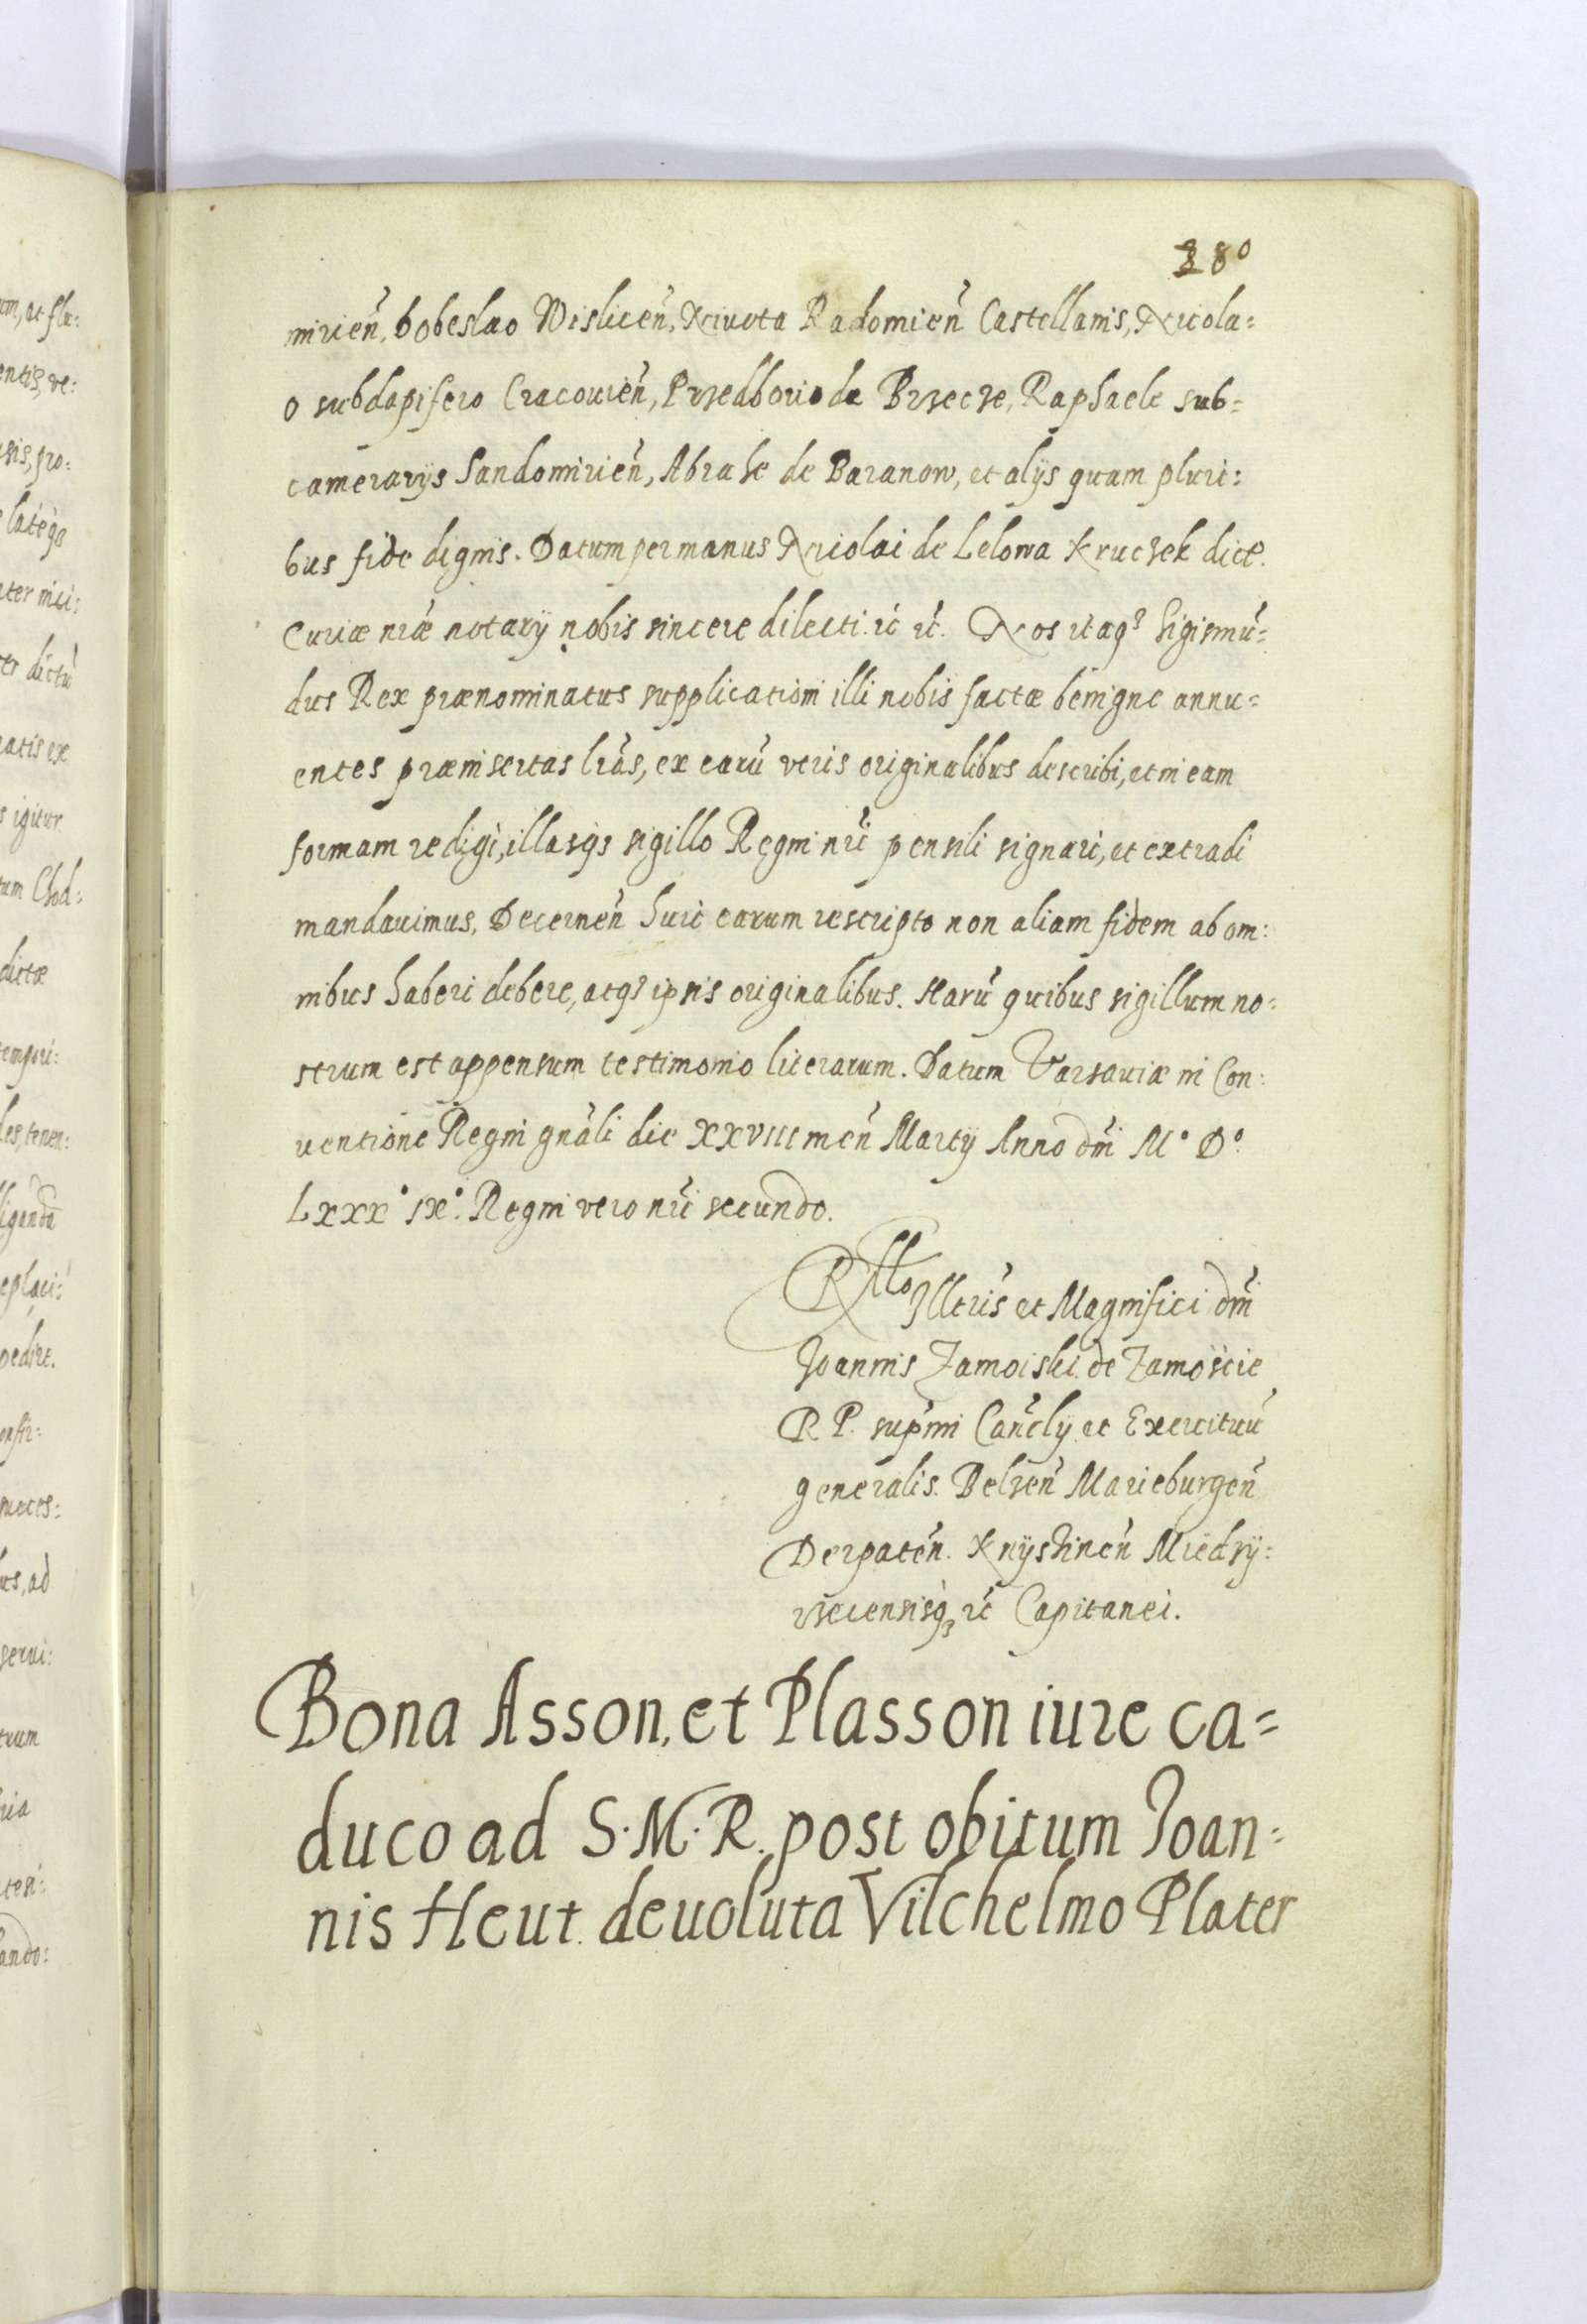 280
mirień, Dobeslao Wislicen̄, Kivota Radomień Castellanis, Nicola=
o subdapifero Cracouień, Przedborio de Brzecze, Raphaele sub=
camerarijs Sandomirień, Abrahe de Baranow, et alijs quam pluri:
bus fide dignis. Datum per manus Nicolai de Lelowa Kruczek dicẽ.
Curiæ nr̃æ notarij nobis sincere dilecti. rc̃ rc̃. Nos itaq3 Sigismũ=
dus Rex prænominatus supplicationi illi nobis factæ benigne annu=
entes præinsertas lr̃as, ex earũ veris originalibus describi, et in eam
formam redigi, illasq3 sigillo Regni nr̃i pensili signari, et extradi
mandauimus. Decernen̄ huic earum rescripto non aliam fidem ab om:
nibus haberi debere, atq3 ipsis originalibus. Harũ quibus sigillum no=
strum est appensum testimonio literarum. Datum Varsauiæ in Con:
uentione Regni gnãli die XXVIII men̄ Martij Anno dm̃i M° D°
Lxxx° ix°. Regni vero nr̃i secundo.
Rllo Illtris̃ et Magnifici dm̃
Joannis Zamoiski de Zamoscie
R P. supm̃i Cañclij et Exercituũ
generalis. Belzen̄ Marieburgen̄
Derpaten̄. Knijshinen̄ Miedzij=
rzecensisq3 rc̃ Capitanei.
Bona Asson, et Plasson iure ca=
duco ad S. M. R. post obitum Joan=
nis Heut. deuoluta Vilchelmo Plater